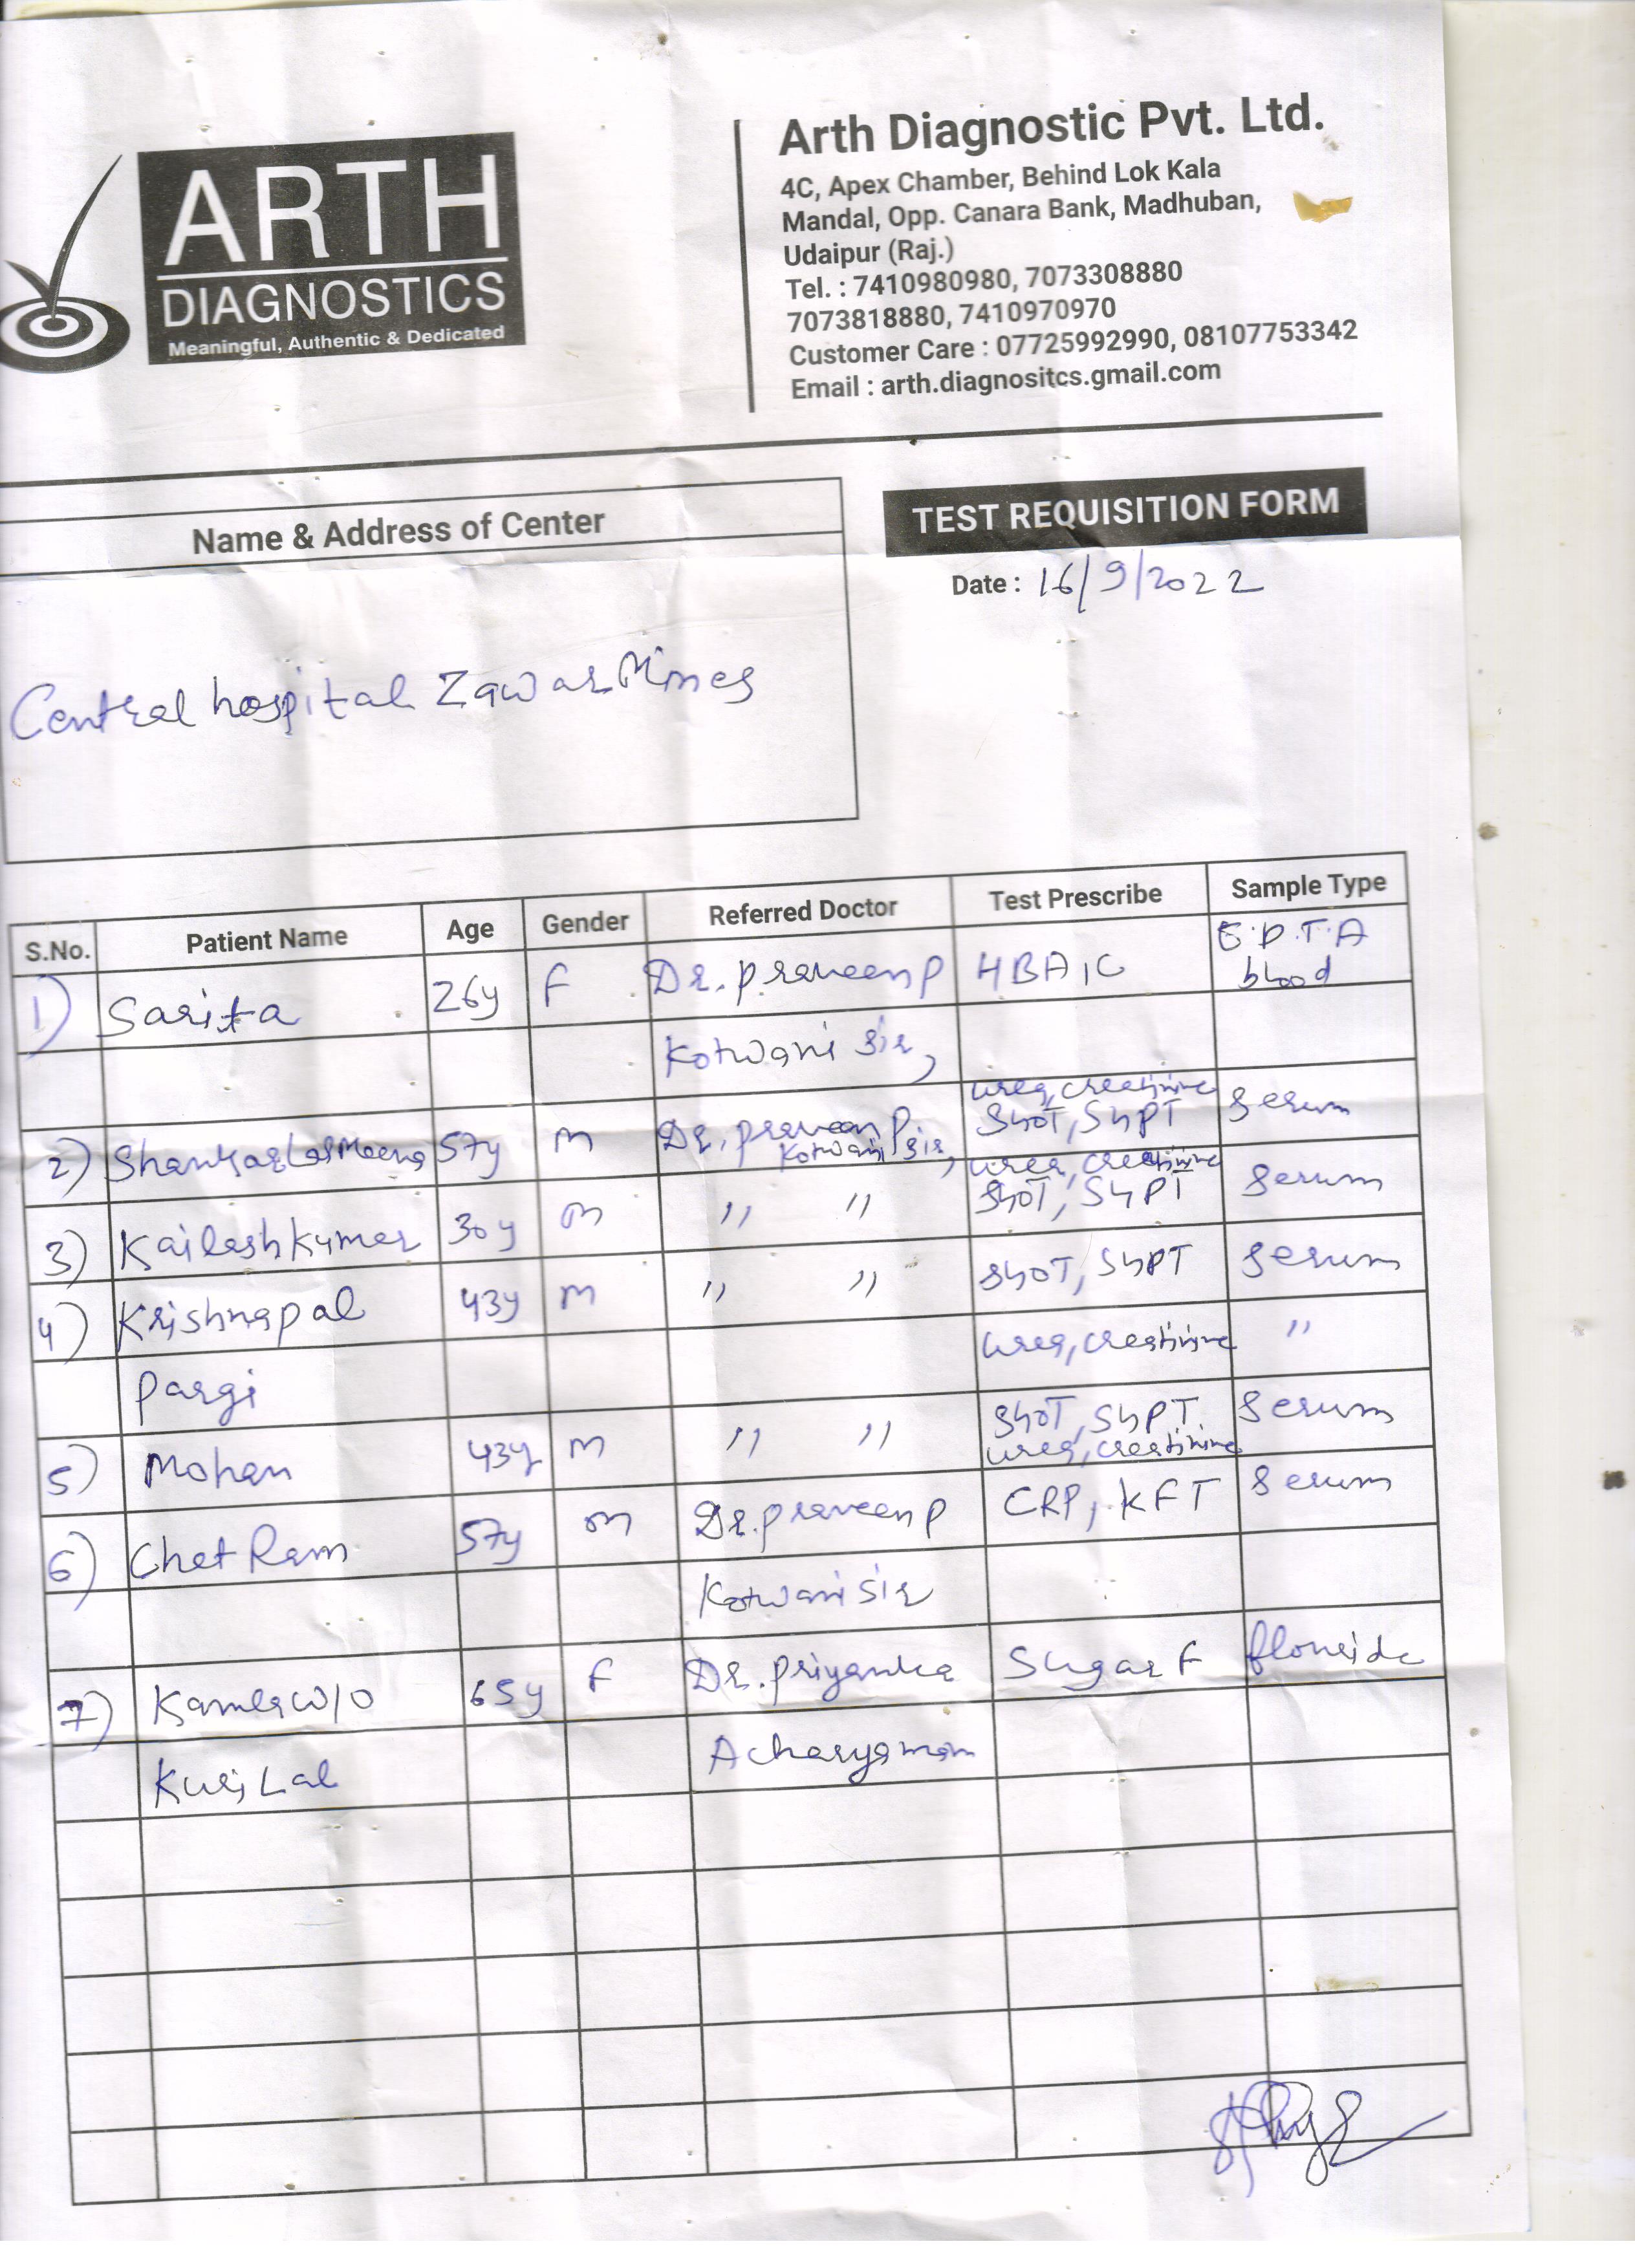 ARTH
DIAGNOSTICS
Meaningful, Authentic & Dedicated
Arth Diagnostic Pvt. Ltd.
4C, Apex Chamber, Behind Lok Kala
Mandal, Opp. Canara Bank, Madhuban,
Udaipur (Raj.)
Tel. : 7410980980, 7073308880
7073818880, 7410970970
Customer Care : 07725992990, 08107753342
Email : arth.diagnositcs.gmail.com
Name & Address of Center
TEST REQUISITION FORM
Date : 16/9/2022
Central hospital Zawar Mines
S.No. Patient Name Age Gender Referred Doctor Test Prescribe Sample Type
1) Sarita 26y F Dr. praveen p HBA1C E.D.T.A
blood
Kotwani sir,
urea, creatinine
2) Shankar Lal Meena 57y M Dr. praveen P SGOT, SGPT serum
Kotwani sir,
urea, creatinine
3) Kailesh kumar 30y M " " SGOT, SGPT serum
4) Krishnapal 43y M " " SGOT, SGPT serum
pargi urea, creatinine "
5) Mohan 43y M " " SGOT, SGPT serum
urea, creatinine
6) Chet Ram 57y M Dr. praveen p CRP, KFT serum
Kotwani sir
7) Kamla w/o 65y F Dr. priyanka Sugar F flouride
Kuri Lal Acharya mam